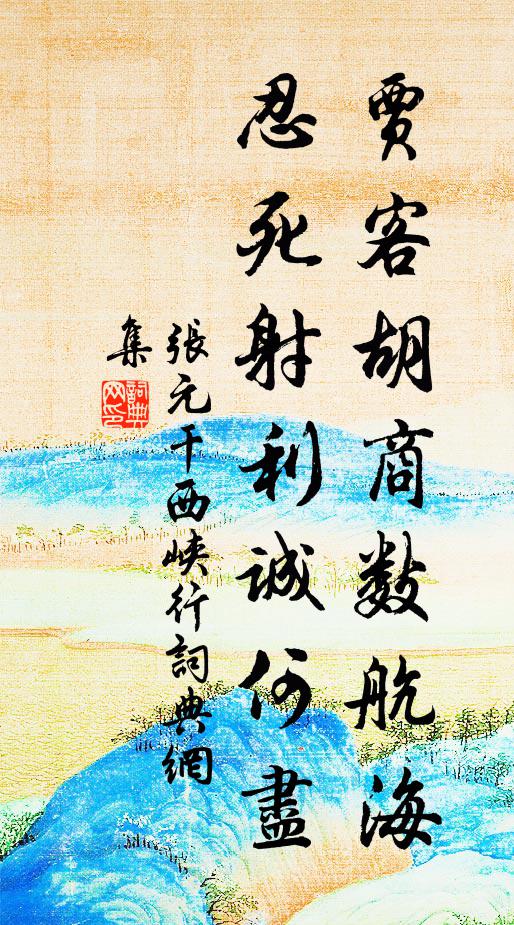 賈客胡商数航海
忍死射利誠何盡
張元干西峽行詞典網
集
詞典
网印